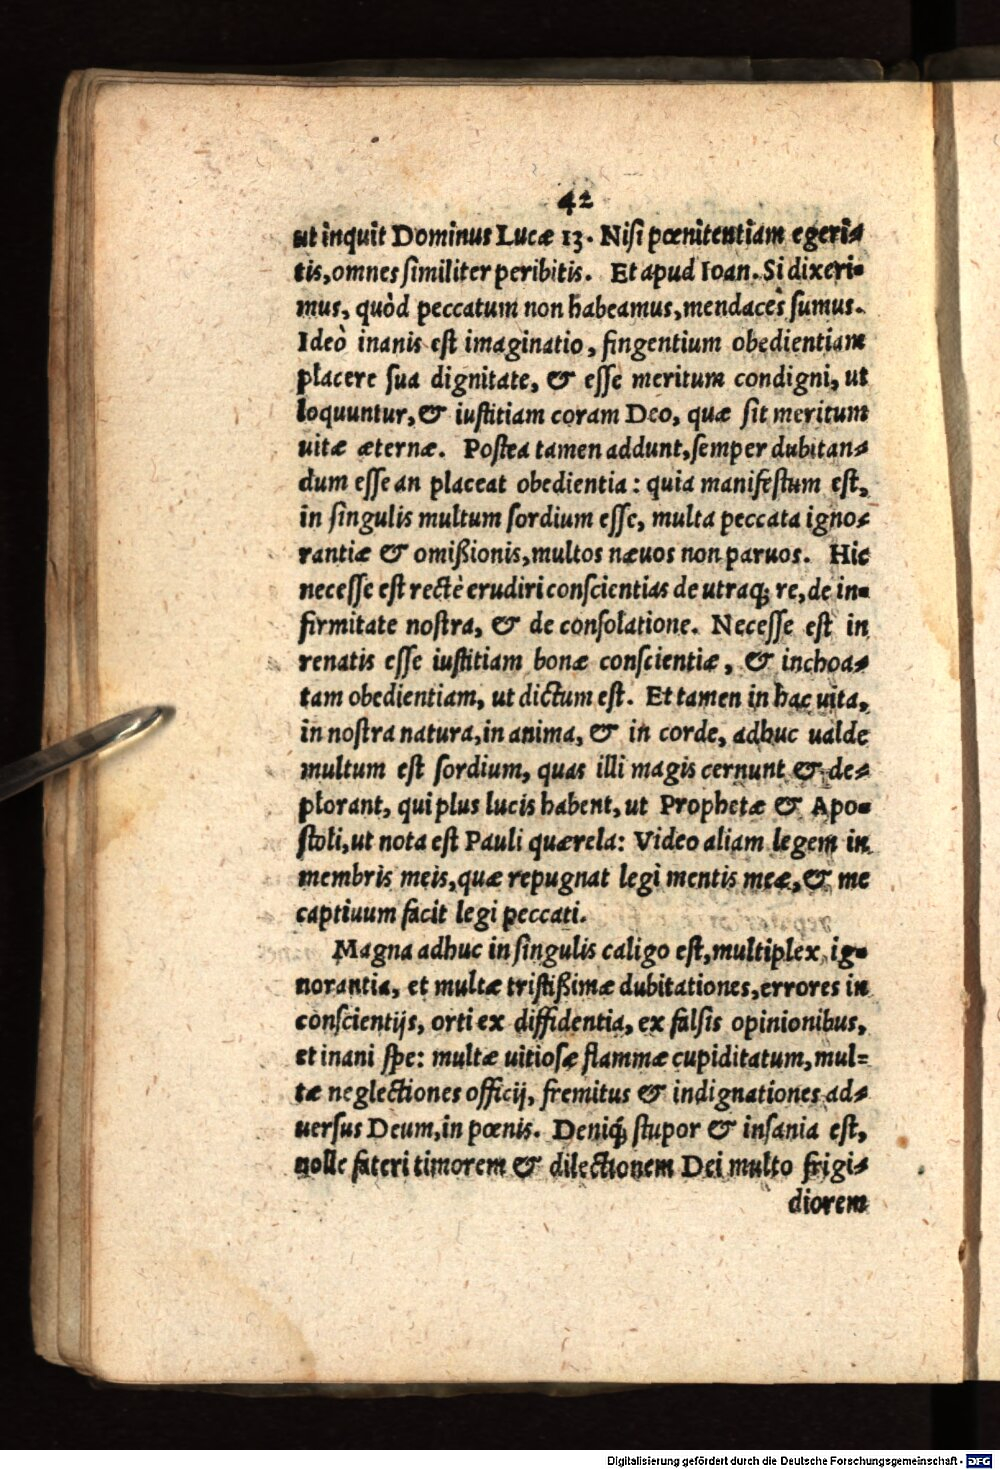 42
ut inquit Dominus Lucæ 13. Nisi pœnitentiam egeri-
tis, omnes similiter peribitis. Et apud Ioan. Si dixeri-
mus, quòd peccatum non habeamus, mendaces sumus.
Ideò inanis est imaginatio, fingentium obedientiam
placere sua dignitate, & esse meritum condigni, ut
loquuntur, & iustitiam coram Deo, quæ sit meritum
uitæ æternæ. Postea tamen addunt, semper dubitan-
dum esse an placeat obedientia: quia manifestum est,
in singulis multum sordium esse, multa peccata igno-
rantiæ & omißionis, multos næuos non paruos. Hic
necesse est rectè erudiri conscientias de utraq; re, de in-
firmitate nostra, & de consolatione. Necesse est in
renatis esse iustitiam bonæ conscientiæ, & inchoa-
tam obedientiam, ut dictum est. Et tamen in hac uita,
in nostra natura, in anima, & in corde, adhuc ualde
multum est sordium, quas illi magis cernunt & de-
plorant, qui plus lucis habent, ut Prophetæ & Apo-
stoli, ut nota est Pauli quærela: Video aliam legem in
membris meis, quæ repugnat legi mentis meæ, & me
captiuum facit legi peccati.
Magna adhuc in singulis caligo est, multiplex ig-
norantia, et multæ tristißimæ dubitationes, errores in
conscientijs, orti ex diffidentia, ex falsis opinionibus,
et inani spe: multæ uitiosæ flammæ cupiditatum, mul-
tæ neglectiones officij, fremitus & indignationes ad-
uersus Deum, in pœnis. Deniq; stupor & insania est,
nolle fateri timorem & dilectionem Dei multo frigi-
diorem
Digitalisierung gefördert durch die Deutsche Forschungsgemeinschaft - DFG